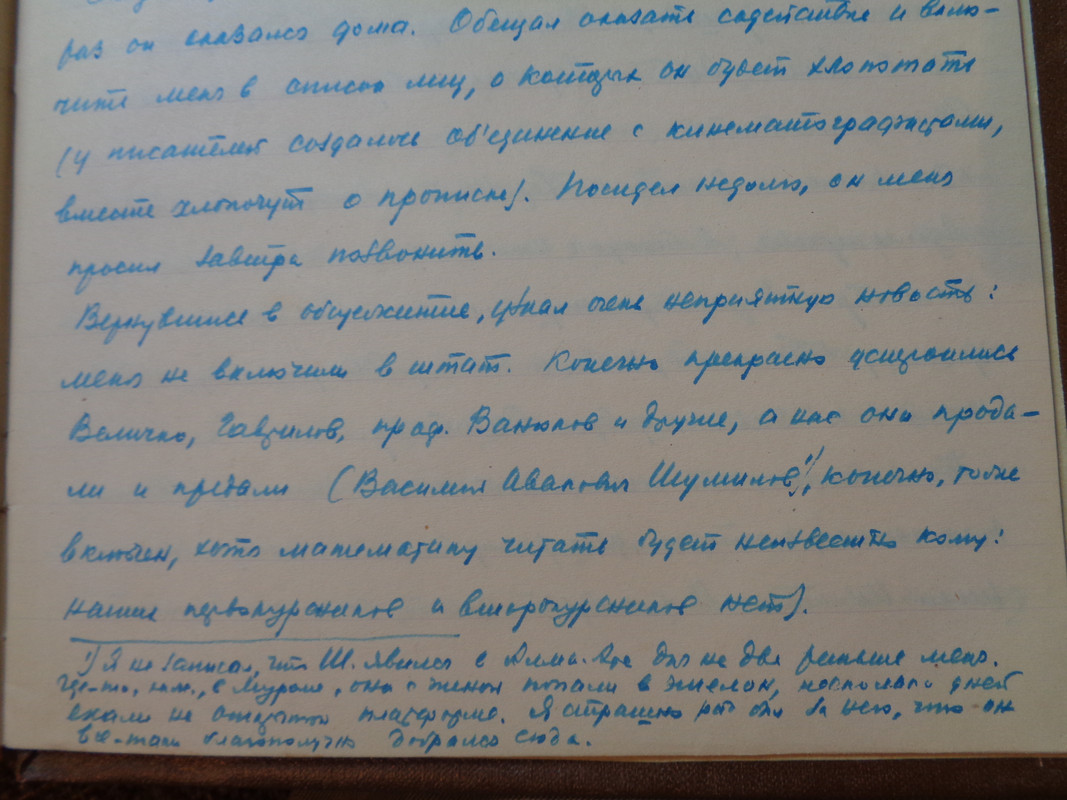 раз он оказался дома. Обещал оказать содействие и вклю-
чить меня в список лиц, о которых он будет хлопотать
(у писателей создалось об'единение с кинематографистами,
вместе хлопочут о прописке). Посидел недолго, он меня
просил завтра позвонить.
Вернувшись в общежитие, узнал очень неприятную новость:
меня не включили в штат. Конечно прекрасно устроились
Величко, Гаврилов, проф. Ванюков и другие, а нас они прода-
ли и предали (Василий Иванович Шумилов¹⁾, конечно, тоже
включен, хотя математику читать будет неизвестно кому:
наших первокурсников и второкурсников нет).
¹⁾ Я не записал, что Ш. явился в Алма-Ата дня на два раньше меня.
Где-то, в Муроме, они с женой попали в эшелон, несколько дней
ехали на открытой платформе. Я страшно рад был за него, что он
все-таки благополучно добрался сюда.